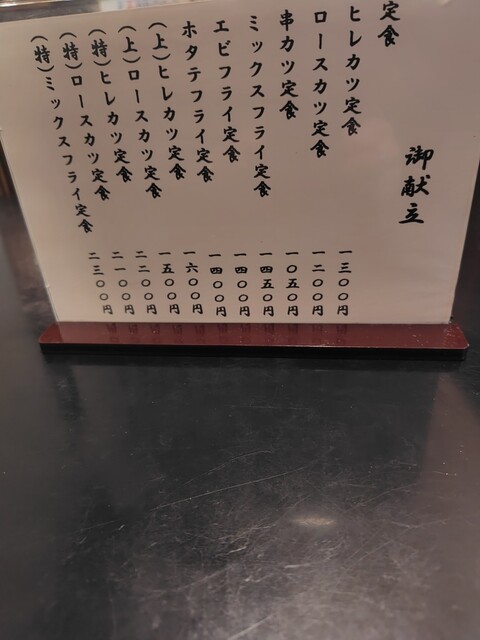 御献立
定食
ヒレカツ定食 一三〇〇円
ロースカツ定食 一二〇〇円
串カツ定食 一〇五〇円
ミックスフライ定食 一四五〇円
エビフライ定食 一四〇〇円
ホタテフライ定食 一四〇〇円
(上)ヒレカツ定食 一六〇〇円
(上)ロースカツ定食 一五〇〇円
(特)ヒレカツ定食 二二〇〇円
(特)ロースカツ定食 二一〇〇円
(特)ミックスフライ定食 二三〇〇円